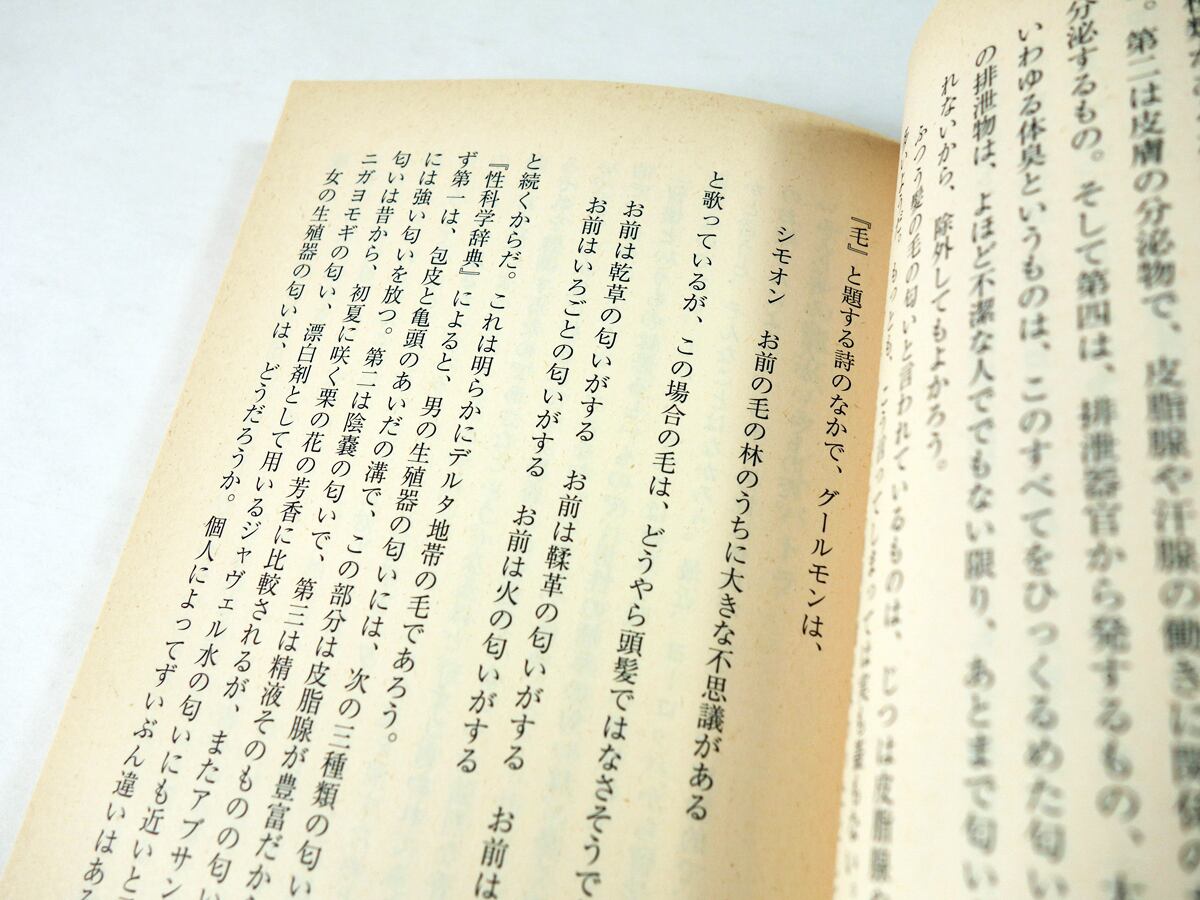 第二は皮膚の分泌物で、皮脂腺や汗腺の働きに関係の
分泌するもの。そして第四は、排泄器官から発するもの、
いわゆる体臭というものは、このすべてをひっくるめた匂い
の排泄物は、よほど不潔な人ででもない限り、あとまで匂い
れないから、除外してもよかろう。
ふつう髪の毛の匂いと言われているものは、じつは皮脂腺
『毛』と題する詩のなかで、グールモンは、
シモオン　お前の毛の林のうちに大きな不思議がある
と歌っているが、この場合の毛は、どうやら頭髪ではなさそうで
お前は乾草の匂いがする　お前は鞣革の匂いがする　お前は
お前はいろごとの匂いがする　お前は火の匂いがする
と続くからだ。これは明らかにデルタ地帯の毛であろう。
『性科学辞典』によると、男の生殖器の匂いには、次の三種類の匂い
ず第一は、包皮と亀頭のあいだの溝で、この部分は皮脂腺が豊富だか
には強い匂いを放つ。第二は陰嚢の匂いで、第三は精液そのものの匂い
匂いは昔から、初夏に咲く栗の花の芳香に比較されるが、またアプサン
ニガヨモギの匂い、漂白剤として用いるジャヴェル水の匂いにも近いと
女の生殖器の匂いは、どうだろうか。個人によってずいぶん違いはある